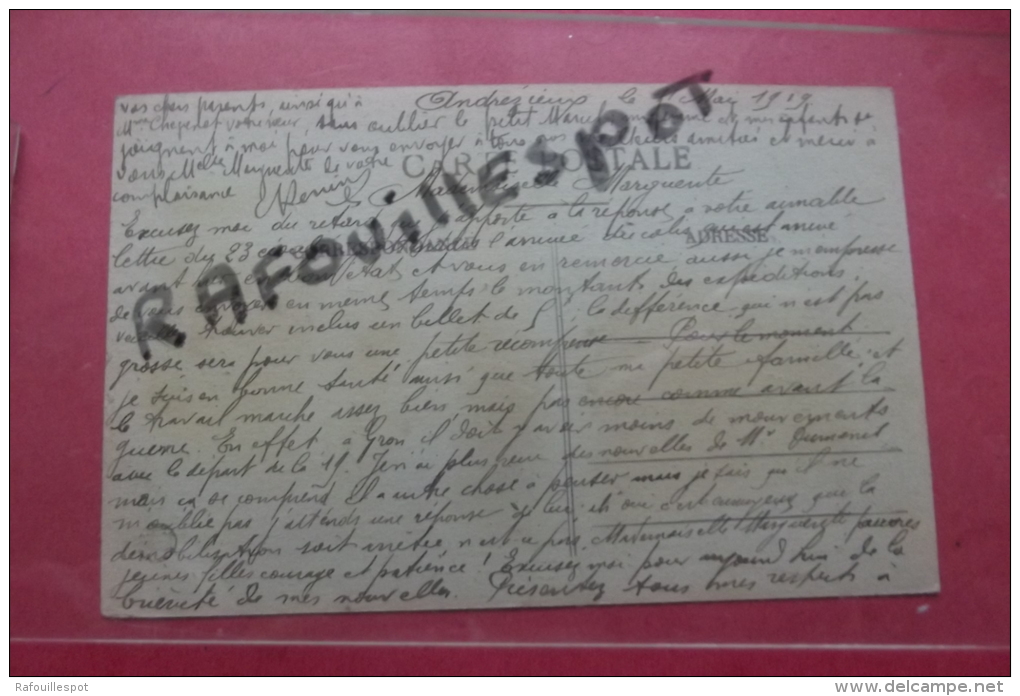 Andrézieux le Mai 1919
vos chers parents, ainsi qu'à
Mme et votre sœur, sans oublier le petit Marcel, ma femme et mes enfants se
joignent à moi pour vous envoyer à tous nos amitiés et merci à
vous Melle Marguerite de votre
complaisance
CARTE POSTALE
Mademoiselle Marguerite
Excusez moi du retard apporté à la réponse à votre aimable
CORRESPONDANCE
ADRESSE
lettre du 23 l'arrivée des colis arrivé
avant et vous en remercie aussi je m'empresse
de vous envoyer en même temps le montant des expéditions.
trouver inclus un billet de 5 la différence, qui n'est pas
grosse, sera pour vous une petite récompense Pour le moment
je suis en bonne santé ainsi que toute ma petite famille et
le travail marche assez bien, mais pas encore comme avant la
guerre. En effet à Gron il doit y avoir moins de mouvements
avec le départ de la 19. Je n'ai plus reçu des nouvelles de Mr Dumonet
mais ça se comprend il a autre chose à penser mais je sais qu'il ne
m'oublie pas j'attends une réponse de lui. oui c'est ennuyeux que la
démobilisation soit arrêtée n'est ce pas, Mademoiselle Marguerite pauvres
jeunes filles courage et patience! Excusez moi pour aujourd'hui de la
brièveté de mes nouvelles. Présentez tous mes respects à
RAFOUILLESPOT
Rafouillespot
www.delcampe.net